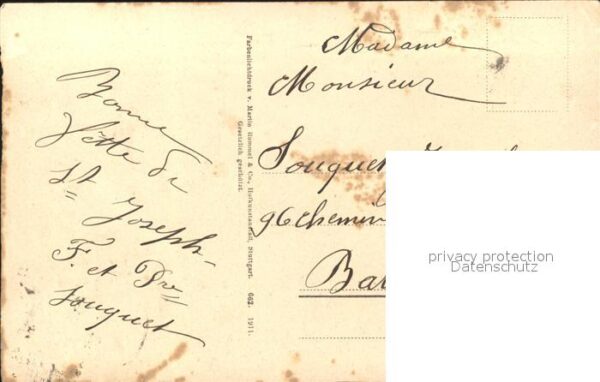 Bonne
fête de
St Joseph
F. et
Souquet
Farbenlichtdruck v. Martin Rommel & Co., Hofkunstanstalt, Stuttgart. 662. 1911.
Gesetzlich geschützt.
Madame
Monsieur
Souquet
96 chemin
Bar
privacy protection
Datenschutz